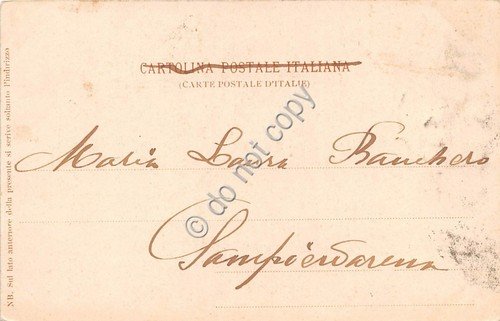 CARTOLINA POSTALE ITALIANA
(CARTE POSTALE D'ITALIE)
Maria Laura Banchero
Sampierdarena
NB. Sul lato anteriore della presente si scrive soltanto l'indirizzo
© do not copy